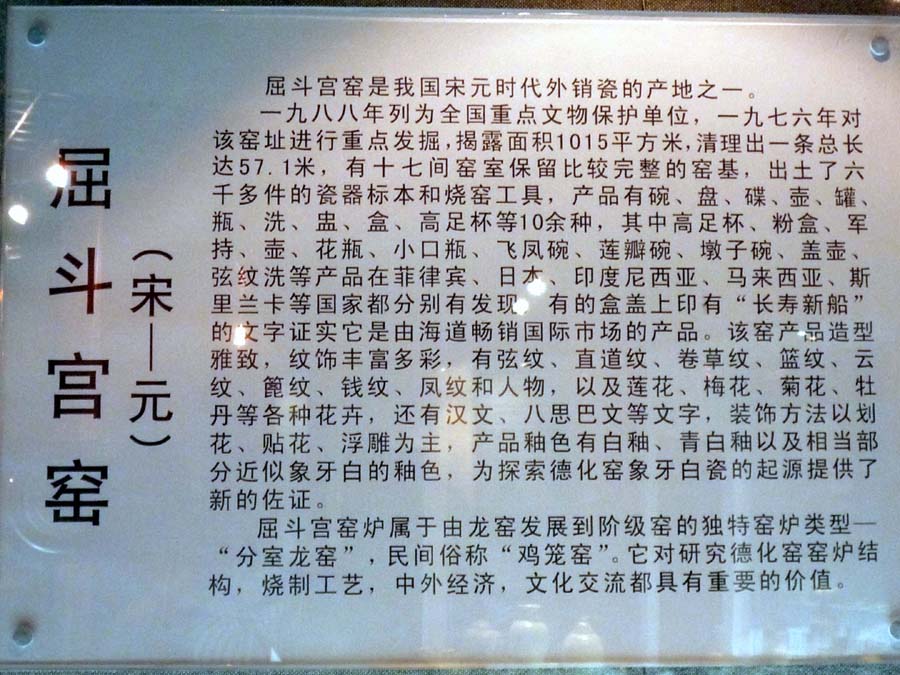 屈斗宫窑
（宋—元）
屈斗宫窑是我国宋元时代外销瓷的产地之一。
一九八八年列为全国重点文物保护单位，一九七六年对
该窑址进行重点发掘，揭露面积1015平方米，清理出一条总长
达57.1米，有十七间窑室保留比较完整的窑基，出土了六
千多件的瓷器标本和烧窑工具，产品有碗、盘、碟、壶、罐、
瓶、洗、盅、盒、高足杯等10余种，其中高足杯、粉盒、军
持、壶、花瓶、小口瓶、飞凤碗、莲瓣碗、墩子碗、盖壶、
弦纹洗等产品在菲律宾、日本、印度尼西亚、马来西亚、斯
里兰卡等国家都分别有发现，有的盒盖上印有“长寿新船”
的文字证实它是由海道畅销国际市场的产品。该窑产品造型
雅致，纹饰丰富多彩，有弦纹、直道纹、卷草纹、篮纹、云
纹、篦纹、钱纹、凤纹和人物，以及莲花、梅花、菊花、牡
丹等各种花卉，还有汉文、八思巴文等文字，装饰方法以划
花、贴花、浮雕为主，产品釉色有白釉、青白釉以及相当部
分近似象牙白的釉色，为探索德化窑象牙白瓷的起源提供了
新的佐证。
屈斗宫窑炉属于由龙窑发展到阶级窑的独特窑炉类型—
“分室龙窑”，民间俗称“鸡笼窑”。它对研究德化窑窑炉结
构，烧制工艺，中外经济，文化交流都具有重要的价值。